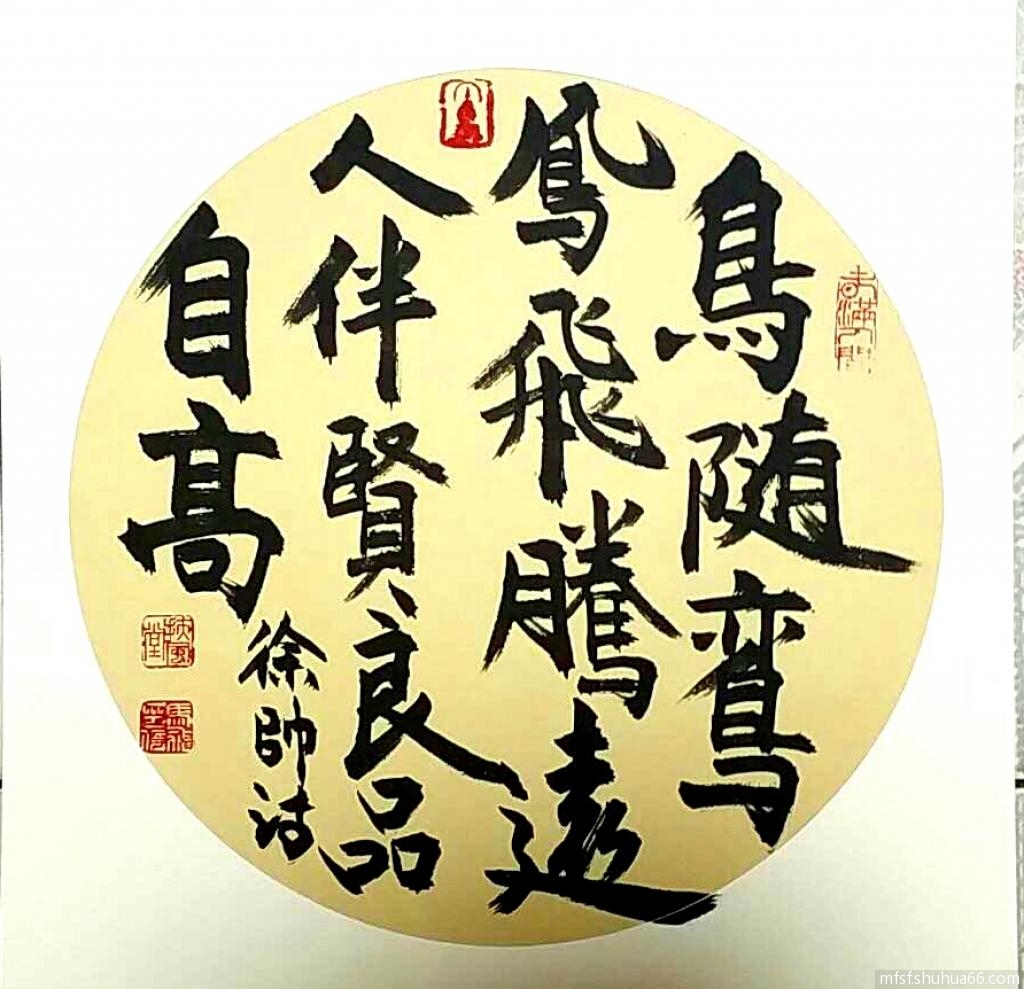 鳥随鸾
鳳飛騰遠
人伴賢良品
自高
徐帥
mfsfshuhua66.com